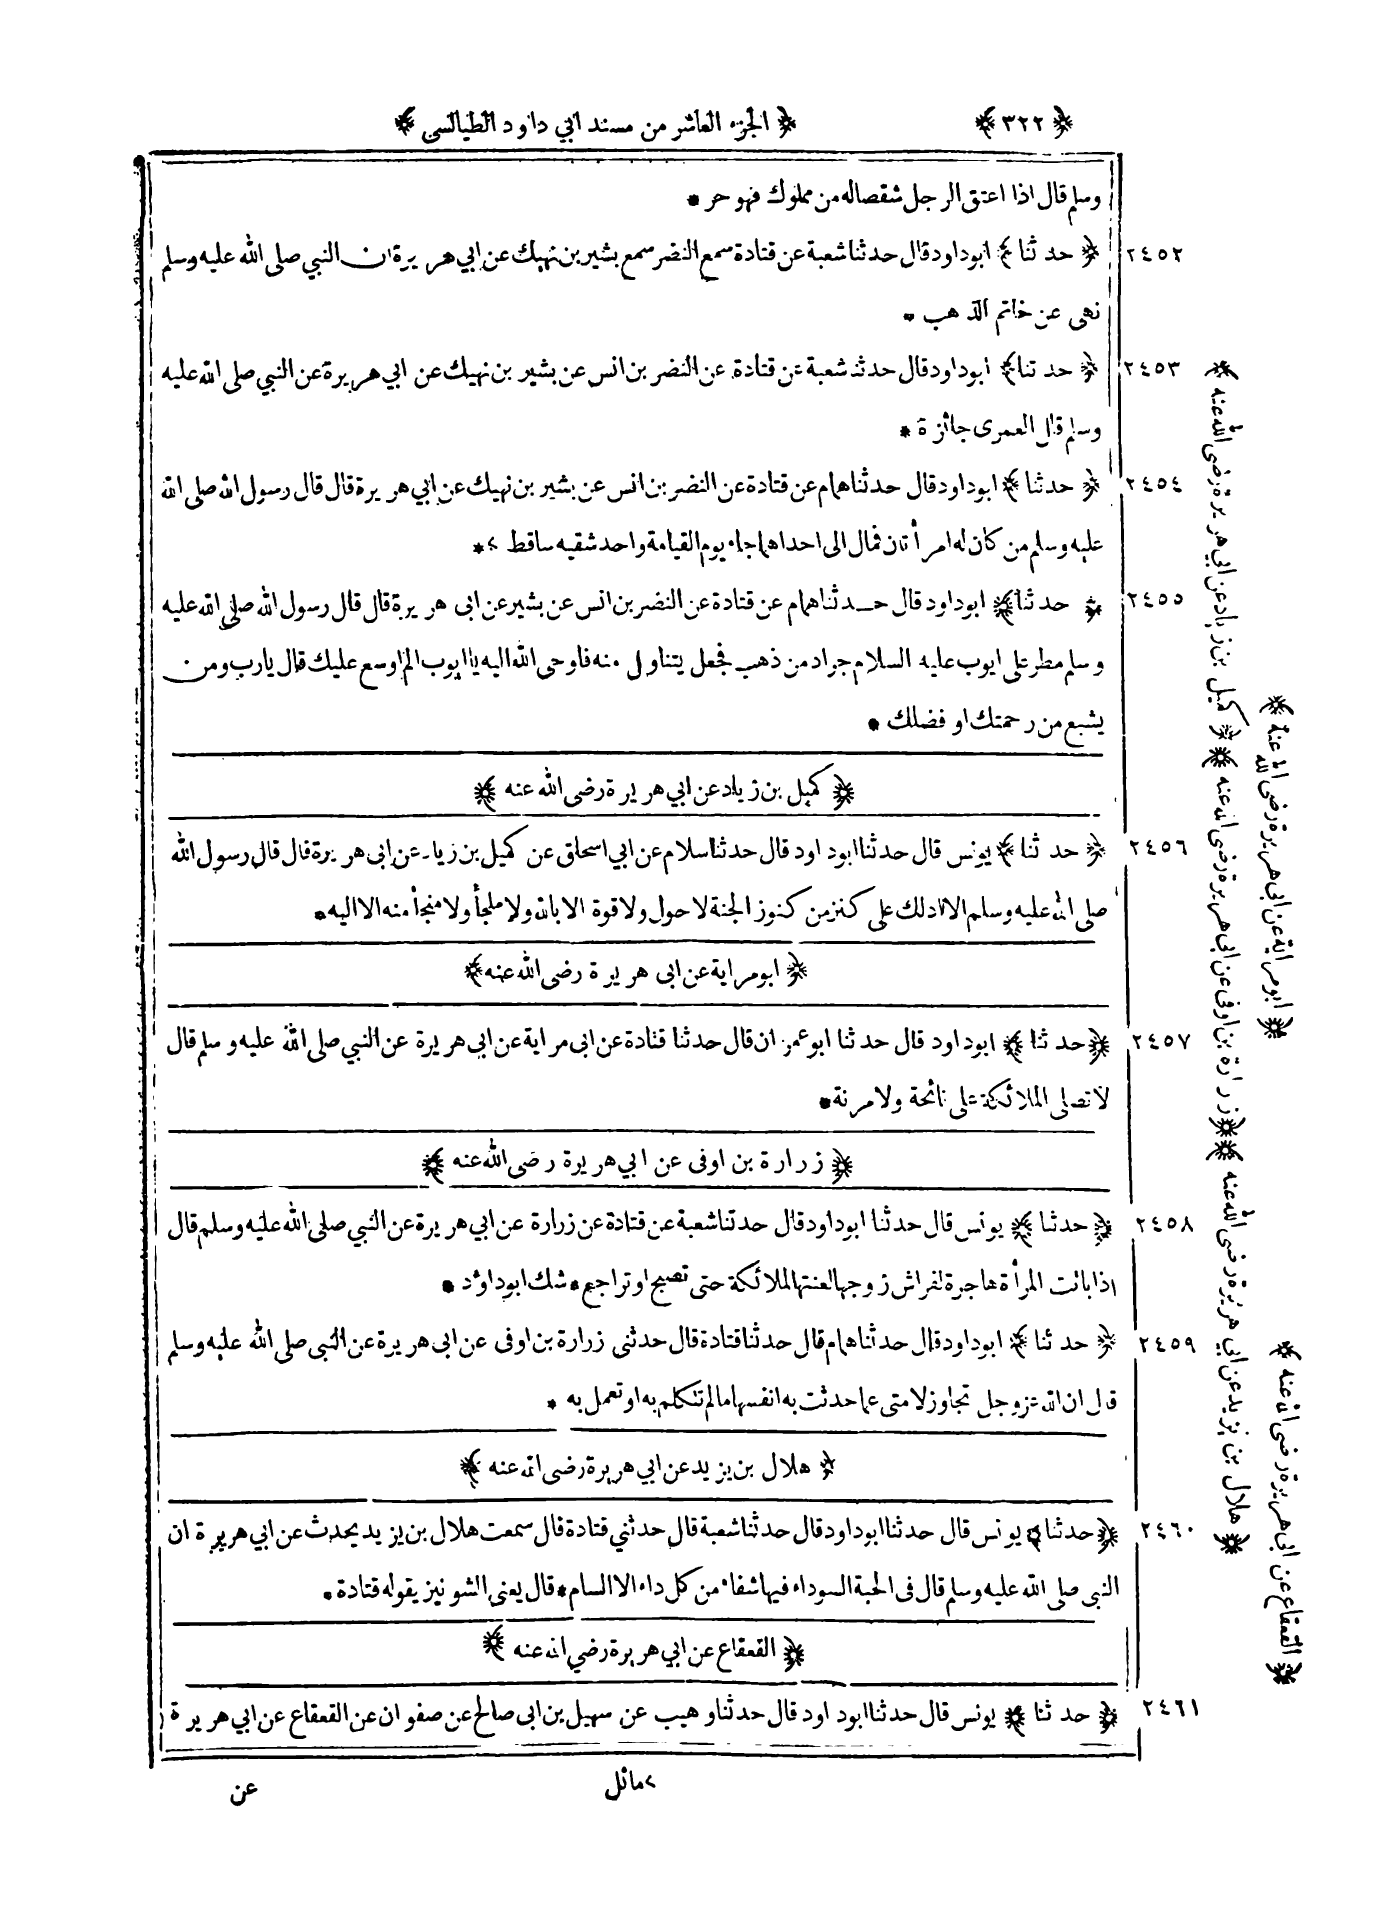 ﴿ ٣٢٢ ﴾ ﴿ الجزء العاشر من مسند ابي داود الطيالسى ﴾
وسلم قال اذا اعتق الرجل شقصاله من مملوك فهو حر *
٢٤٥٢ ﴿ حدثنا ﴾ ابوداود قال حدثنا شعبة عن قتادة سمع النضر سمع بشير بن نهيك عن ابي هريرة ان النبي صلى الله عليه وسلم
نهى عن خاتم الذهب *
٢٤٥٣ ﴿ حدثنا ﴾ ابوداود قال حدثنا شعبة عن قتادة عن النضر بن انس عن بشير بن نهيك عن ابي هريرة عن النبي صلى الله عليه
وسلم قال العمرى جائزة *
٢٤٥٤ ﴿ حدثنا ﴾ ابوداود قال حدثنا همام عن قتادة عن النضر بن انس عن بشير بن نهيك عن ابي هريرة قال قال رسول الله صلى الله
عليه وسلم من كان له امرأتان فمال الى احداهما جاء يوم القيامة واحد شقيه ساقط >*
٢٤٥٥ ﴿ حدثنا ﴾ ابوداود قال حدثنا همام عن قتادة عن النضر بن انس عن بشير عن ابى هريرة قال قال رسول الله صلى الله عليه
وسلم مطر على ايوب عليه السلام جراد من ذهب فجعل يتناول منه فاوحى الله اليه يا ايوب الم اوسع عليك قال يارب ومن
يشبع من رحمتك او فضلك *
﴿ كميل بن زياد عن ابي هريرة رضى الله عنه ﴾
٢٤٥٦ ﴿ حدثنا ﴾ يونس قال حدثنا ابوداود قال حدثنا سلام عن ابي اسحاق عن كميل بن زياد عن ابى هريرة قال قال رسول الله
صلى الله عليه وسلم الا ادلك على كنز من كنوز الجنة لا حول ولا قوة الا بالله ولا ملجأ ولا منجأ منه الا اليه *
﴿ ابومراية عن ابى هريرة رضى الله عنه ﴾
٢٤٥٧ ﴿ حدثنا ﴾ ابوداود قال حدثنا ابوعمران قال حدثنا قتادة عن ابى مراية عن ابى هريرة عن النبي صلى الله عليه وسلم قال
لا تصلى الملائكة على نائحة ولا مرنة *
﴿ زرارة بن اوفى عن ابي هريرة رضى الله عنه ﴾
٢٤٥٨ ﴿ حدثنا ﴾ يونس قال حدثنا ابوداود قال حدثنا شعبة عن قتادة عن زرارة عن ابي هريرة عن النبي صلى الله عليه وسلم قال
اذا باتت المرأة هاجرة لفراش زوجها لعنتها الملائكة حتى تصبح او تراجع * شك ابوداؤد *
٢٤٥٩ ﴿ حدثنا ﴾ ابوداود قال حدثنا همام قال حدثنا قتادة قال حدثنى زرارة بن اوفى عن ابى هريرة عن النبى صلى الله عليه وسلم
قال ان الله عزوجل تجاوز لامتى عما حدثت به انفسها مالم تتكلم به او تعمل به *
﴿ هلال بن يزيد عن ابي هريرة رضى الله عنه ﴾
٢٤٦٠ ﴿ حدثنا ﴾ يونس قال حدثنا ابوداود قال حدثنا شعبة قال حدثني قتادة قال سمعت هلال بن يزيد يحدث عن ابي هريرة ان
النبى صلى الله عليه وسلم قال فى الحبة السوداء فيها شفاء من كل داء الا السام * قال يعنى الشونيز يقوله قتادة *
﴿ القعقاع عن ابي هريرة رضي الله عنه ﴾
٢٤٦١ ﴿ حدثنا ﴾ يونس قال حدثنا ابوداود قال حدثنا وهيب عن سهيل بن ابى صالح عن صفوان عن القعقاع عن ابي هريرة
> مائل
عن
﴿ كميل بن زياد عن ابي هريرة رضى الله عنه ﴾
﴿ ابومراية عن ابى هريرة رضى الله عنه ﴾
﴿ زرارة بن اوفى عن ابى هريرة رضى الله عنه ﴾
﴿ هلال بن يزيد عن ابي هريرة رضى الله عنه ﴾
﴿ القعقاع عن ابى هريرة رضى الله عنه ﴾